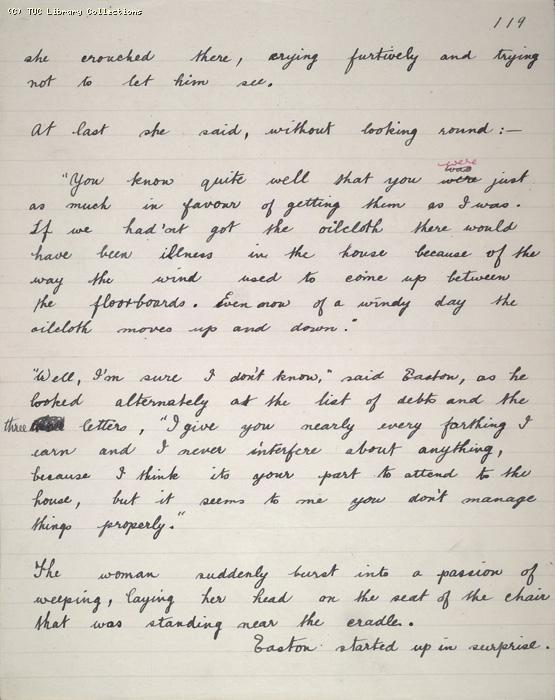 (C) TUC Library Collections
119
she crouched there, crying furtively and trying
not to let him see.
At last she said, without looking round:—
were
was
"You know quite well that you were just
as much in favour of getting them as I was.
If we had'nt got the oilcloth there would
have been illness in the house because of the
way the wind used to come up between
the floorboards. Even now of a windy day the
oilcloth moves up and down."
"Well, I'm sure I don't know," said Easton, as he
looked alternately at the list of debts and the
three letters, "I give you nearly every farthing I
earn and I never interfere about anything,
because I think its your part to attend to the
house, but it seems to me you don't manage
things properly."
The woman suddenly burst into a passion of
weeping, laying her head on the seat of the chair
that was standing near the cradle.
Easton started up in surprise.